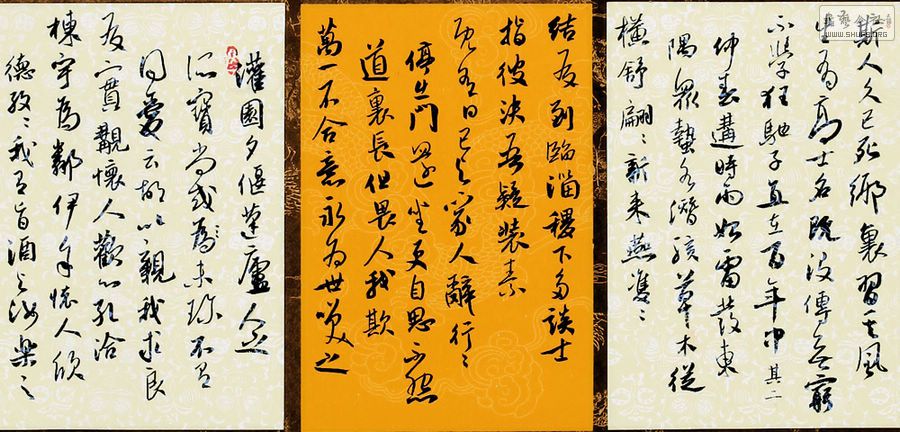 斯人久已死鄉裏習其風
生有高士名既沒傳無窮
不學狂馳子直在百年中 其二
仲春遘時雨始雷發東
隅眾蟄各潛駭草木從
橫舒翩〻新來燕雙〻
結友到臨淄稷下多談士
指彼決吾疑裝束
既有日已與家人辭行〻
停出門還坐更自思不怨
道裏長但畏人我欺
萬一不合意永為世笑之
灌園夕偃蓬廬人之
所寶尚或為未珍不有
同愛云胡以親我求良
友實覯懷人歡心孔洽
棟宇為鄰伊余懷人欣
德孜〻我有旨酒與汝樂〻